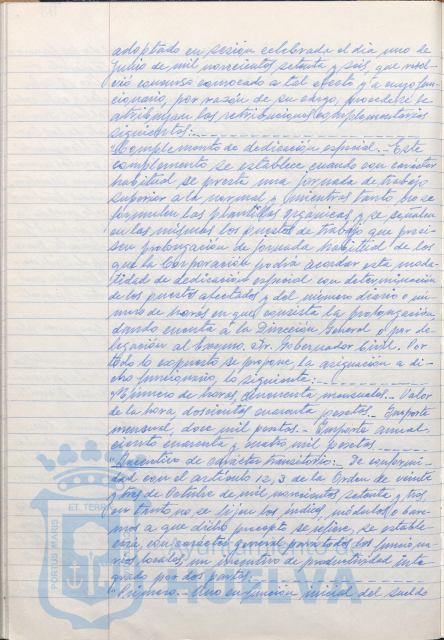 adoptado en sesión celebrada el día uno de
Julio de mil novecientos setenta y seis, que resol-
vió concurso convocado a tal efecto y a cuyo fun-
cionario, por razón de su cargo, procedería se
atribuyan las retribuciones complementarias
siguientes:
"Complemento de dedicación especial.- Este
complemento se establece cuando con carácter
habitual se presta una jornada de trabajo
superior a la normal y mientras tanto no se
formulen las plantillas orgánicas y se señalen
en las mismas los puestos de trabajo que preci-
sen prolongación de jornada habitual de los
que la Corporación podrá acordar esta moda-
lidad de dedicación especial con determinación
de los puestos afectados y del número diario o mí-
nimo de horas en que consista la prolongación
dando cuenta a la Dirección General o por de-
legación al Excmo. Sr. Gobernador Civil. Por
todo lo expuesto se propone, la asignación a di-
cho funcionario, lo siguiente:
"Número de horas, cincuenta mensuales.- Valor
de la hora, doscientas cuarenta pesetas.- Importe
mensual, doce mil pesetas.- Importe anual
ciento cuarenta y cuatro mil pesetas.
"Incentivo de carácter transitorio:- De conformi-
dad con el artículo 12,3 de la Orden de veinte
y tres de Octubre de mil novecientos setenta y tres,
en tanto no se fijen los índices, módulos o bare-
mos a que dicho precepto se refiere, se estable-
cerá, con carácter general para todos los funciona-
rios locales, un incentivo de productividad inte-
grado por dos partes:
"Primero.- Una en función inicial del sueldo
PORTUS MARIS ET TERRAE
Ayuntamiento de
HUELVA